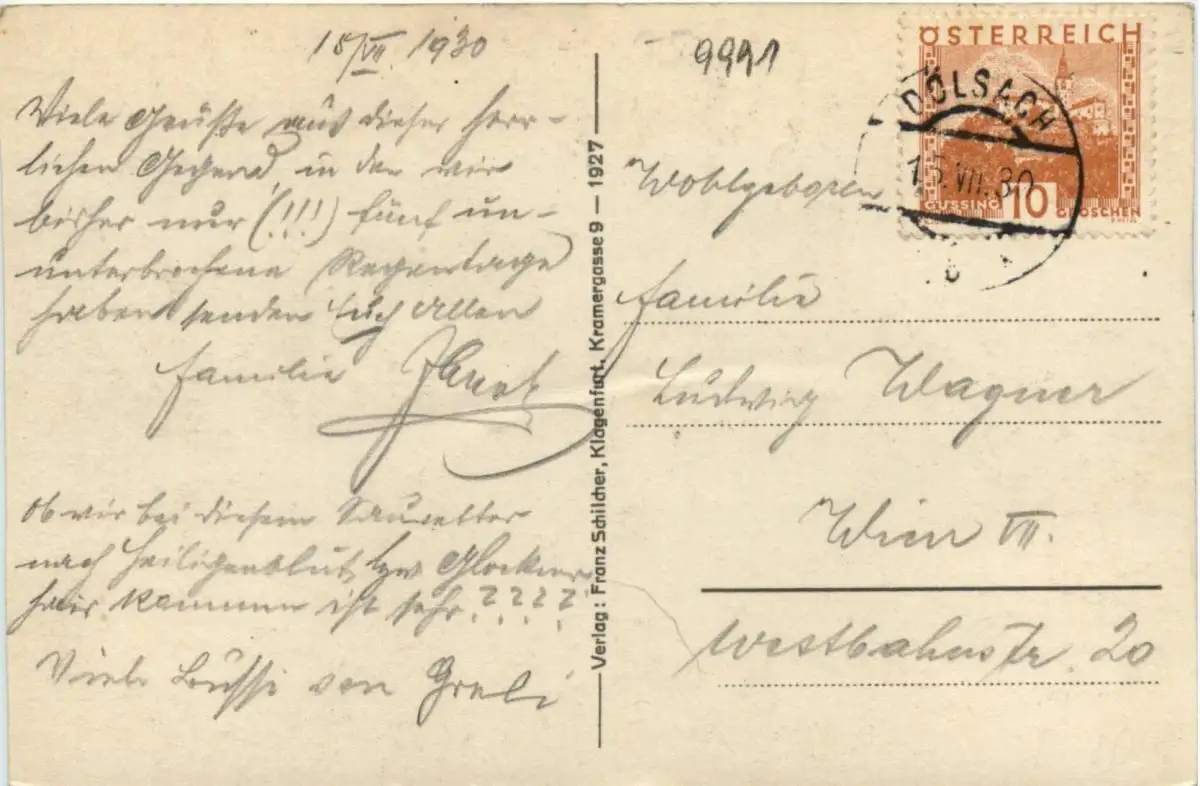 15/VII. 1930
Viele Grüße aus dieser herr-
lichen Gegend, in der wir
bisher nur (!!!) fünf un-
unterbrochene Regentage
haben senden Euch Allen
Familie
Ob wir bei diesem Sauwetter
nach Heiligenblut bzw Glockner
haus kommen ist sehr ????
Viele Bussi von Greti
Verlag: Franz Schilcher, Klagenfurt, Kramergasse 9 — 1927
9991
ÖSTERREICH
GÜSSING 10 GROSCHEN
DÖLSACH
15.VII.30
Wohlgeboren
Familie
Ludwig Wagner
Wien VII.
Westbahnstr. 20